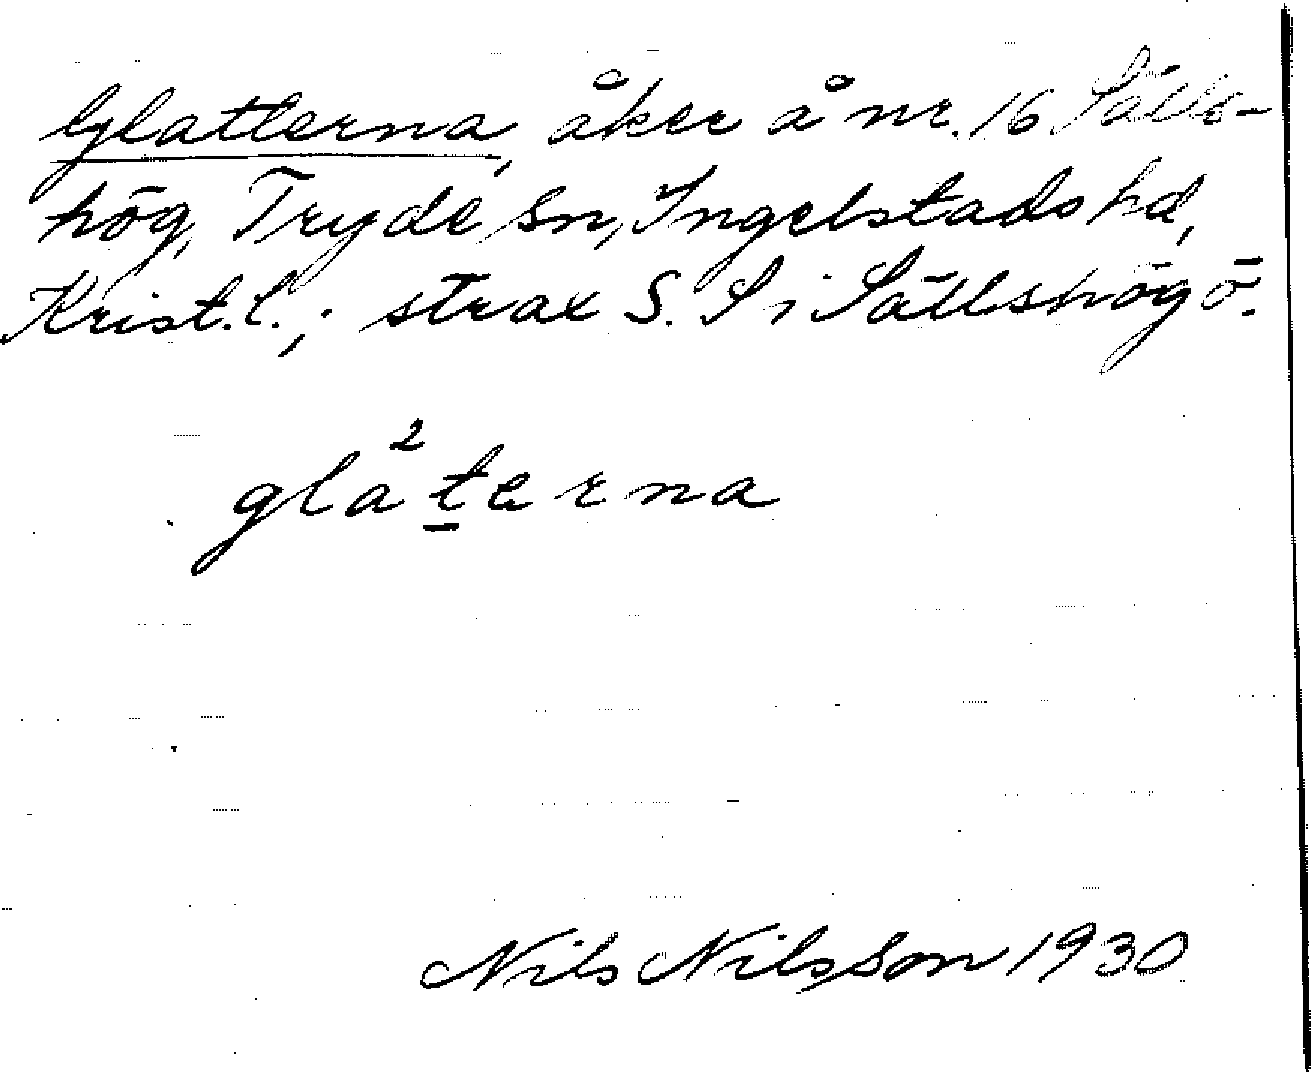 Glatterna, åker å nr. 16 Sälls-
hög, Tryde sn, Ingelstads hd,
Krist.l.; strax S. S i Sällshög ö.
gla²terna
Nils Nilsson 1930